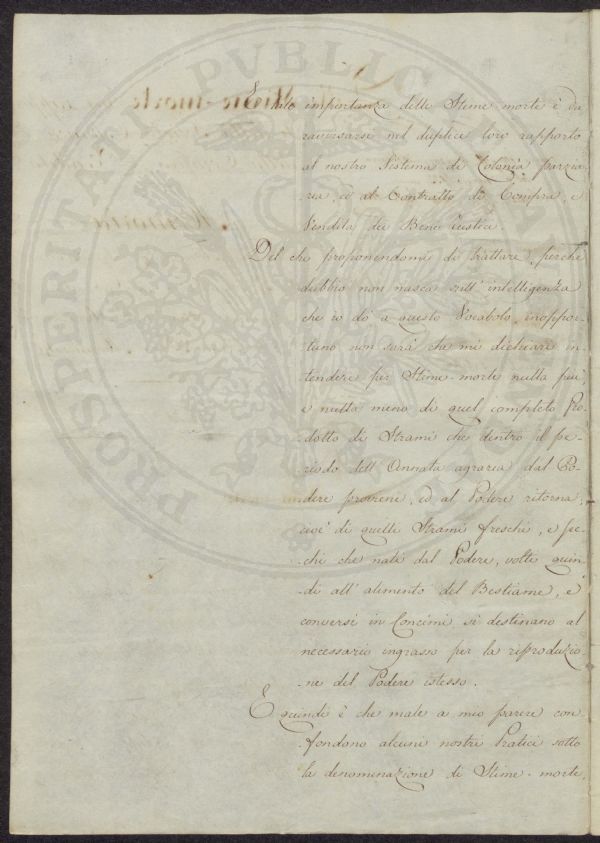 tale importanza delle Stime morte è da
ravvisarsi nel duplice loro rapporto
al nostro Sistema di Colonia parzia-
ria, ed al Contratto di Compra, e
Vendita dei Beni Rustici.
Del che proponendomi di trattare, perchè
dubbio non nasca sull' intelligenza
che io dò a questo Vocabolo, inoppor-
tuno non sarà che mi dichiari in-
tendere per Stime-morte nulla più,
e nulla meno di quel completo Pro-
dotto di Strami che dentro il pe-
riodo dell' Annata agraria dal Po-
dere proviene, ed al Podere ritorna,
cioè di quelli Strami freschi, e sec-
chi che nati dal Podere, volti quin-
di all' alimento del Bestiame, e
conversi in Concimi si destinano al
necessario ingrasso per la riproduzio-
ne del Podere istesso.
E quindi è che male a mio parere con-
fondono alcuni nostri Pratici sotto
la denominazione di Stime-morte,
PROSPERITATI PUBLICAE